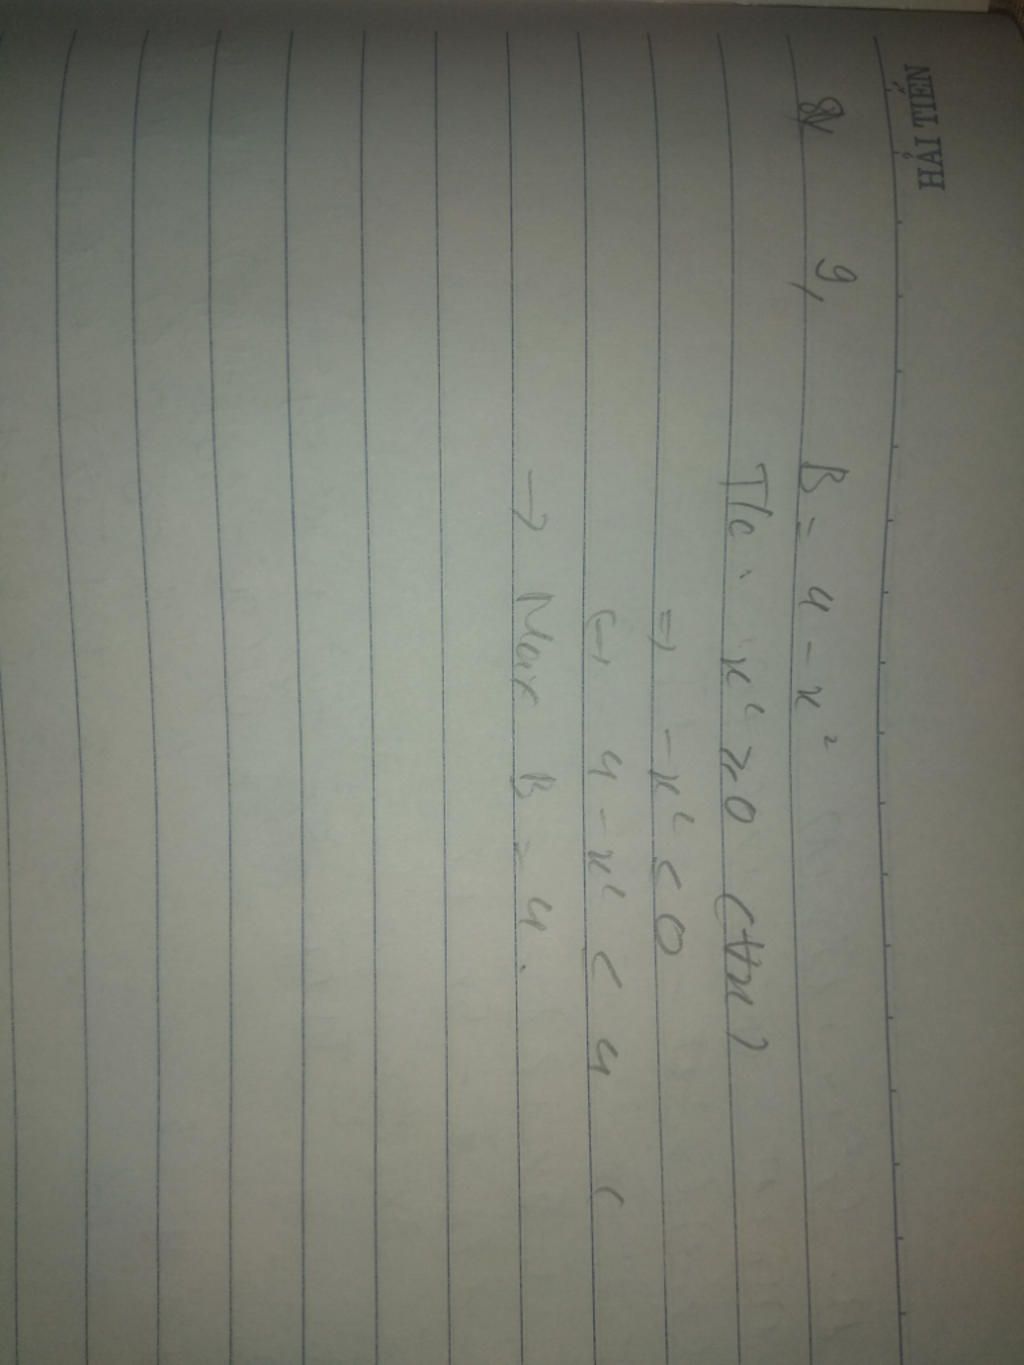 HẢI TIẾN
9, B = 4 - x²
T/c : x² ≥ 0 (∀x)
=> -x² < 0
(-) 4 - x² < 4 (
-> Max B = 4.